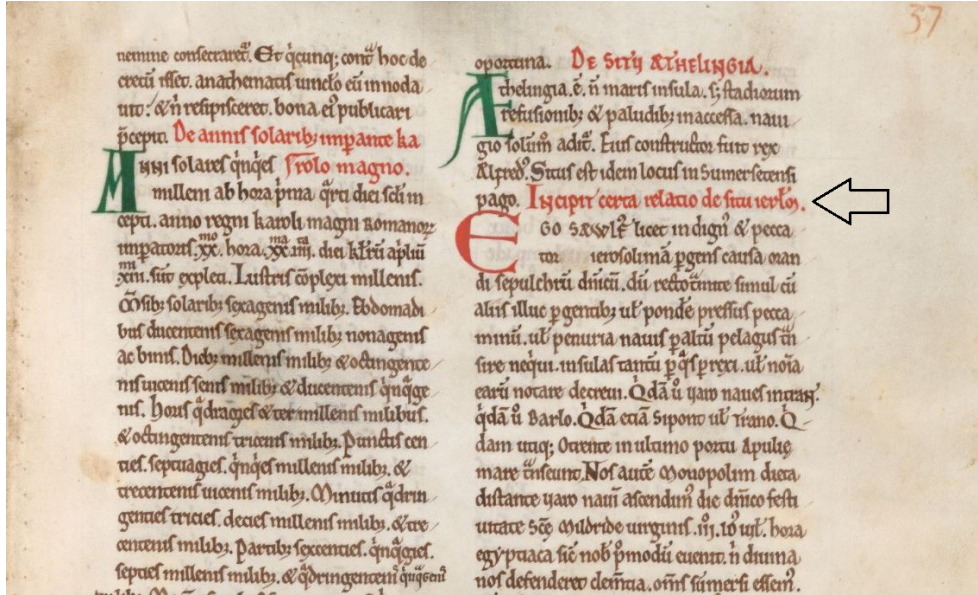 37
nemine consecraret᷒. Et q̇cunq; cont̾ hoc de
cretū isset. anathematis uinclo eū innoda
uit. & n̄ resipisceret. bona ei᷒ publicari
p̄cepit. De annis solarib; imp̱ante ka
ANNI solares q̇nq̇es rrolo magno.
milleni ab hora p̄ma q̄rti diei sc̄li in
cepti. anno regni karoli magni Romanoꝝ
imꝑatoris .xx.mo hora .xx.ma iiij.ma diei kl̄rū ap̄liū
xiii.ma sūt expleti. Lustris cōplexi millenis.
M̄sib; solarib; sexagenis milib;. Ebdomadi
bus ducentenis sexagenis milib; nonagenis
ac binis. Dieb; millenis milib; & octingente
nis uicenis senis milib; & ducentenis q̇nq̄ge
nis. Horis q̄dragies & ter millenis milibus.
& octingentenis tricenis milib;. Punctis cen
ties. septuagies. q̇nq̇es millenis milib;. &
trecentenis uicenis milib;. Minutis q̄drin
genties tricies. decies millenis milib;. & tre
centenis milib;. Partib; sexcenties. q̇nq̄gies.
septies millenis milib;. & q̄dringenteni q̇nq̄geni
oportuna. De sitū ÆTHELINGIA.
Æthelingia .ē. n̄ maris insula. s; stadiorum
refusionib; & paludib; inaccessa. naui
gio solūm adit᷒. Eius constructor fuit rex
Ælfred᷒. Situs est idem locus in Sumersetensi
pago. Incipit certa relatio de situ ierl̄m.
EGO SÆWLF̄ licet indign᷒ & pecca
tor ierosolimā ꝑgens causa oran
di sepulchrū dn̄icū. dū recto t̄mite simul cū
aliis illuc ꝑgentib; ul̄ ponđe pressus pecca
minū. ul̄ penuria nauis ꝑ altū pelagus t̄n
sire neq̇ui. insulas tantū ꝑ q̄s ꝑrexi. ul̄ noīa
earū notare decreui. Q̇dā u̾ uaro naues intraɴ᷒.
q̇dā u̾ Barlo. Q̇dā etiā Siponto ul̄ Trano. Q̇
dam utiq; Otrente in ultimo portu Apulię
mare t̄nseunt. Nos autē Monopolim dieta
distante uaro nauī ascendim᷒ die dn̄ico festi
uitate Sc̄ę Mildride uirginis. iii. id᷒ iul̄. hora
egyptiaca sic̄ nob̄ p᷒modū euenit. n̄ diuina
nos defenderet clem̄tia. om̄s sūmersi essem᷒.